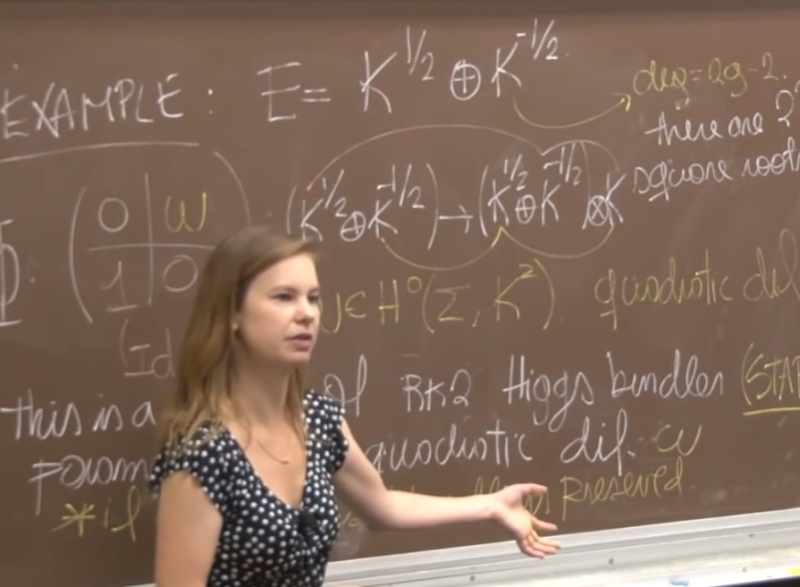 EXAMPLE: E = K^{1/2} ⊕ K^{-1/2}.
deg = 2g-2.
there are 2
square roots
Φ: (0 | ω
1 | 0) : (K^{1/2} ⊕ K^{-1/2}) → (K^{1/2} ⊕ K^{-1/2}) ⊗ K
(Id
ω ∈ H⁰(Σ, K²). quadratic
this is a of RK2 Higgs bundles
quadratic dif. ω
*if preserved.